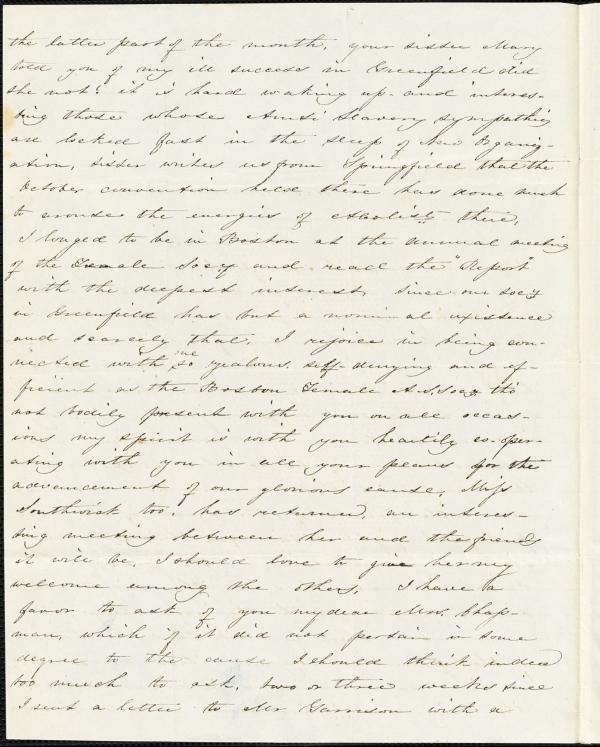 the latter part of the month, your sister Mary
told you of my ill success in Greenfield did
she not? it is hard waking up and interes-
ting those whose Anti Slavery sympathies
are locked fast in the sleep of New Organiz-
ation, sister writes us from Springfield that the
October convention held there has done much
to arouse the energies of abolists there,
I longed to be in Boston at the annual meeting
of the Female Socy and read the "Report"
with the deepest interest, since our socy
in Greenfield has but a nominal existence
and scarcely that, I rejoice in being con-
nected with one so zealous, self-denying and ef-
ficient as the Boston Female A.S. Socy tho'
not bodily present with you on all occas-
ions my spirit is with you heartily co-oper-
ating with you in all your plans for the
advancement of our glorious cause, Miss
Southwick too, has returned, an interes-
ting meeting between her and the friends
it will be, I should love to give her my
welcome among the others, I have a
favor to ask of you my dear Mrs. Chap-
man, which if it did not pertain in some
degree to the cause I should think indeed
too much to ask, two or three weeks since
I sent a letter to Mr Garrison with a